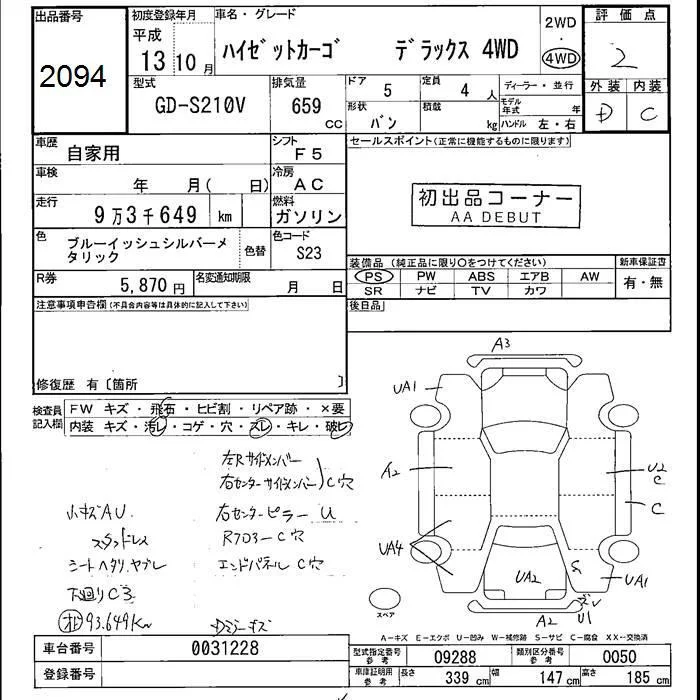 出品番号
2094
初度登録年月
平成
13 10 月
車名・グレード
ハイゼットカーゴ デラックス 4WD
2WD
・
4WD
評価点
2
外装 内装
D C
型式
GD-S210V
排気量
659
CC
ドア
5
定員
4 人
形状
バン
積載
kg
ディーラー・並行
モデル年式 年
ハンドル 左・右
車歴
自家用
シフト
F5
車検
年 月( 日)
冷房
AC
走行
9万3千649 km
燃料
ガソリン
色
ブルーイッシュシルバーメ
タリック
色替
色コード
S23
R券
5,870 円
名変通知期限
月 日
セールスポイント(正常に機能するものに限ります)
初出品コーナー
AA DEBUT
装備品(純正品に限り○をつけてください)
新車保証書
PS PW ABS エアB AW
SR ナビ TV カワ
有・無
後日品
注意事項申告欄(不具合内容等は具体的に記入して下さい)
修復歴 有〔箇所 〕
検査員
記入欄
FW キズ・飛石・ヒビ割・リペア跡・×要
内装 キズ・汚レ・コゲ・穴・スレ・キレ・破レ
左Rサイドメンバー
右センターサイドメンバー C穴
小キズAU
右センターピラー U
スタッドレス
Rフロアー C穴
シートヘタリ、ヤブレ
エンドパネル C穴
下廻りC3
93.649Km
A3
UA1
A2
U2
C
C
UA4
UA2
S
UA1
A2
U1
スペア
A-キズ E-エクボ U-凹み W-補修跡 S-サビ C-腐食 XX-交換済
車台番号
0031228
登録番号
型式指定番号
参考
09288
類別区分番号
参考
0050
車庫証明用
参考
長さ 339 cm 幅 147 cm 高さ 185 cm